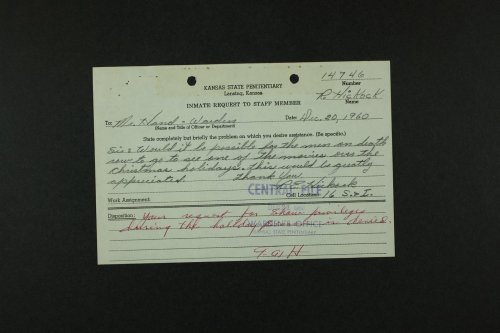 14746
KANSAS STATE PENITENTIARY
Number
Lansing, Kansas
R. Hickock
INMATE REQUEST TO STAFF MEMBER
Name
To: Mr. Hand - Warden
Date: Dec. 20, 1960
(Name and Title of Officer or Department)
State completely but briefly the problem on which you desire assistance. (Be specific).
Sir: Would it be possible for the men on death
row to go to see one of the movies over the
Christmas holidays. This would be greatly
appreciated. Thank You
R. E. Hickock
CENTRAL FILE
Work Assignment:
Cell Location: 16 S. & I.
Disposition: Your request for show privileges
during the holidays is denied.
WARDEN'S OFFICE
STATE PENITENTIARY